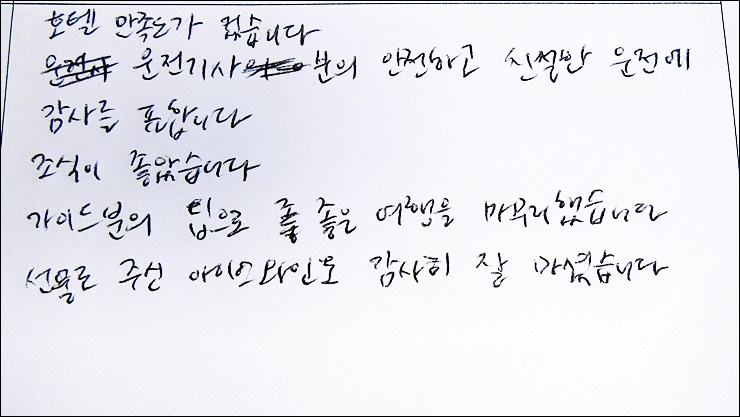 호텔 만족도가 컸습니다
운전기사분의 안전하고 친절한 운전에
감사를 표합니다
조식이 좋았습니다
가이드분의 팁으로 좋은 여행을 마무리했습니다
선물로 주신 아이스와인도 감사히 잘 마셨습니다